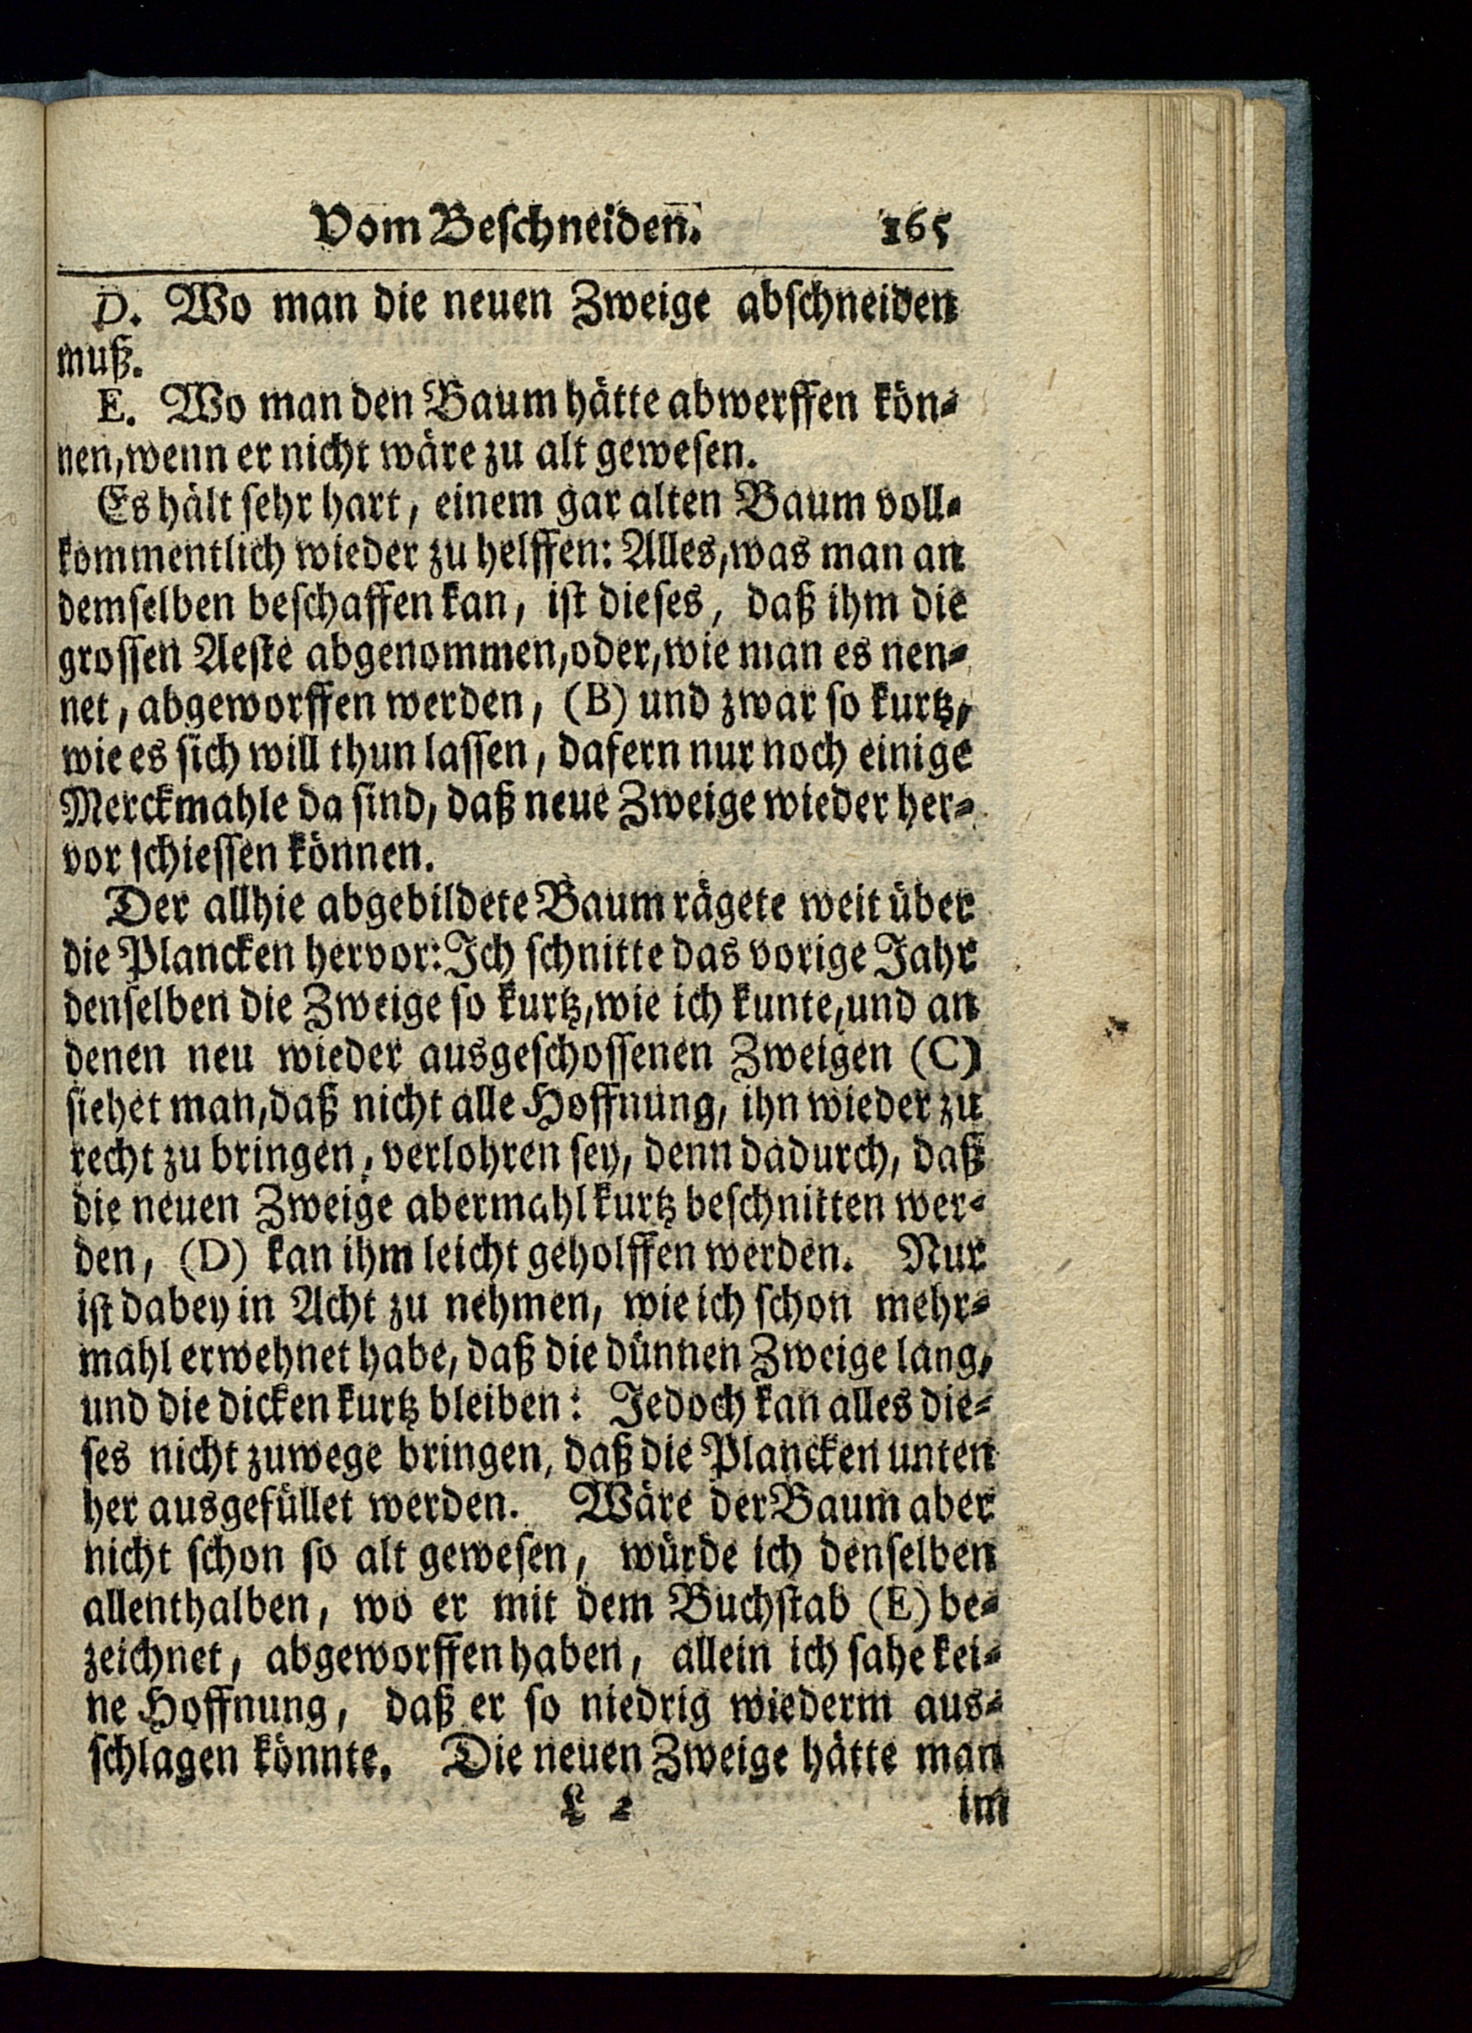 Vom Beschneiden. 165
D. Wo man die neuen Zweige abschneiden
muß.
E. Wo man den Baum hätte abwerffen kön-
nen, wenn er nicht wäre zu alt gewesen.
Es hält sehr hart, einem gar alten Baum voll-
kommentlich wieder zu helffen: Alles, was man an
demselben beschaffen kan, ist dieses, daß ihm die
grossen Aeste abgenommen, oder, wie man es nen-
net, abgeworffen werden, (B) und zwar so kurtz,
wie es sich will thun lassen, dafern nur noch einige
Merckmahle da sind, daß neue Zweige wieder her-
vor schiessen können.
Der allhie abgebildete Baum rägete weit über
die Plancken hervor: Ich schnitte das vorige Jahr
denselben die Zweige so kurtz, wie ich kunte, und an
denen neu wieder ausgeschossenen Zweigen (C)
siehet man, daß nicht alle Hoffnung, ihn wieder zu
recht zu bringen, verlohren sey, denn dadurch, daß
die neuen Zweige abermahl kurtz beschnitten wer-
den, (D) kan ihm leicht geholffen werden. Nur
ist dabey in Acht zu nehmen, wie ich schon mehr-
mahl erwehnet habe, daß die dünnen Zweige lang,
und die dicken kurtz bleiben: Jedoch kan alles die-
ses nicht zuwege bringen, daß die Plancken unten
her ausgefüllet werden. Wäre der Baum aber
nicht schon so alt gewesen, würde ich denselben
allenthalben, wo er mit dem Buchstab (E) be-
zeichnet, abgeworffen haben, allein ich sahe kei-
ne Hoffnung, daß er so niedrig wiederm aus-
schlagen könnte. Die neuen Zweige hätte man
L 2 im